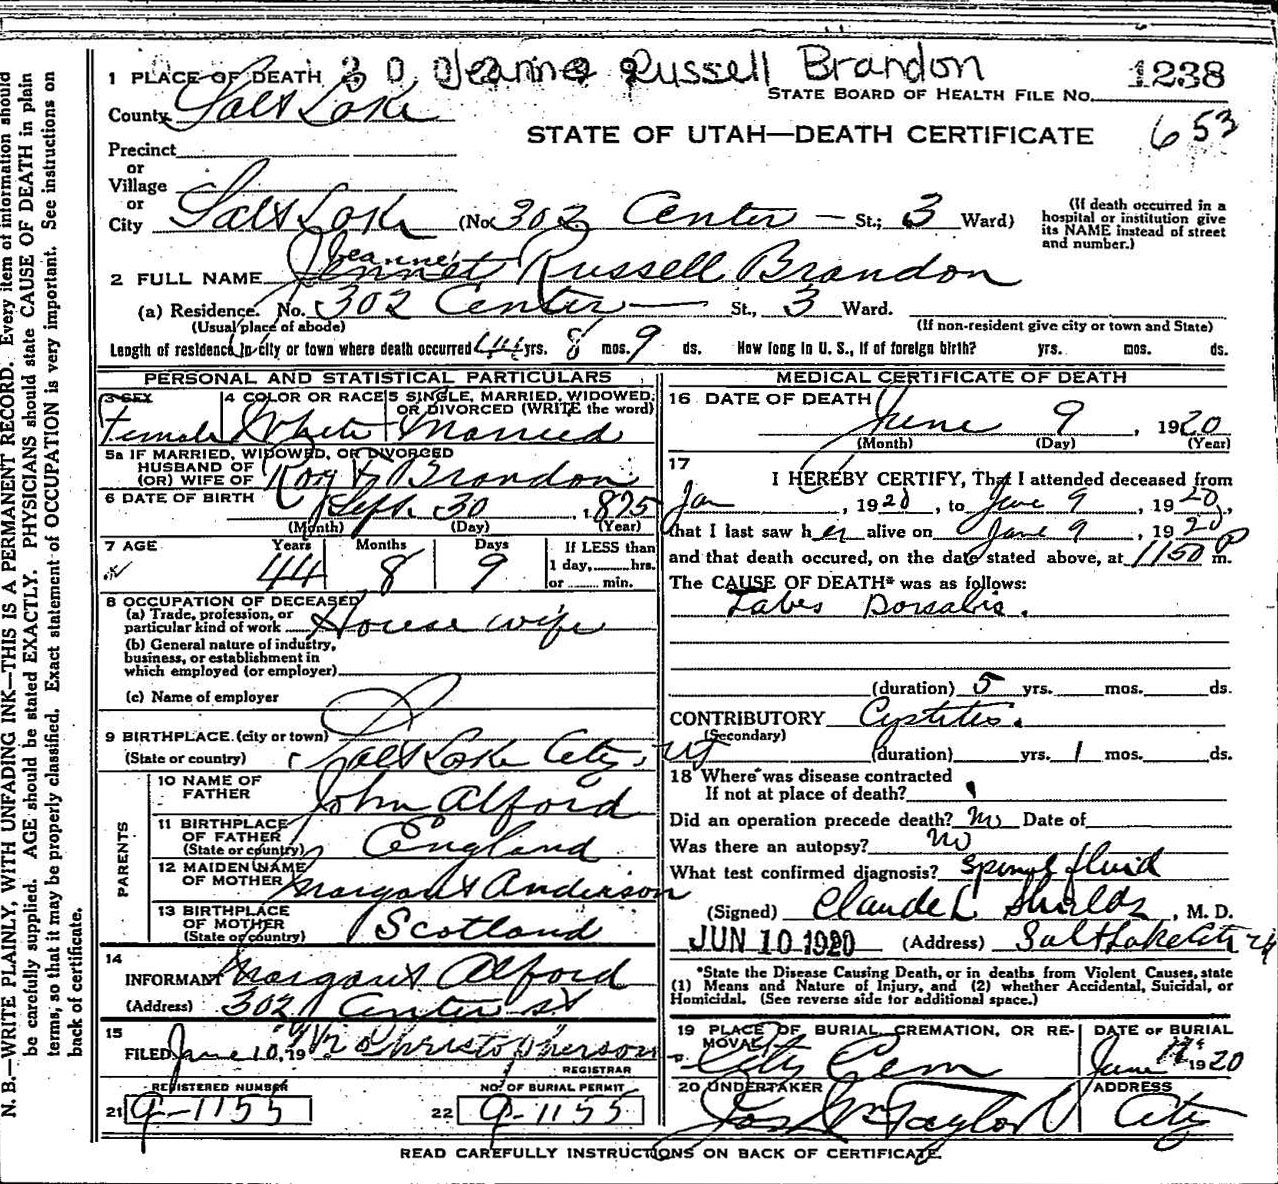 N. B.—WRITE PLAINLY, WITH UNFADING INK—THIS IS A PERMANENT RECORD. Every item of information should
be carefully supplied. AGE should be stated EXACTLY. PHYSICIANS should state CAUSE OF DEATH in plain
terms, so that it may be properly classified. Exact statement of OCCUPATION is very important. See instructions on
back of certificate.
Jeanne Russell Brandon
1 PLACE OF DEATH
STATE BOARD OF HEALTH FILE NO. 1238
County Salt Lake
STATE OF UTAH—DEATH CERTIFICATE
653
Precinct
or
Village
or
City Salt Lake (No. 302 Center — St.; 3 Ward)
(If death occurred in a
hospital or institution give
its NAME instead of street
and number.)
Jeanne
2 FULL NAME Jennet Russell Brandon
(a) Residence. No. 302 Center St., 3 Ward.
(Usual place of abode) (If non-resident give city or town and State)
Length of residence in city or town where death occurred 44 yrs. 8 mos. 9 ds. How long in U. S., if of foreign birth? yrs. mos. ds.
PERSONAL AND STATISTICAL PARTICULARS
3 SEX Female
4 COLOR OR RACE White
5 SINGLE, MARRIED, WIDOWED, OR DIVORCED (WRITE the word) Married
5a IF MARRIED, WIDOWED, OR DIVORCED
HUSBAND OF
(OR) WIFE OF Roy Brandon
6 DATE OF BIRTH Sept. 30, 1875
(Month) (Day) (Year)
7 AGE Years 44 Months 8 Days 9 If LESS than
1 day, hrs.
or min.
8 OCCUPATION OF DECEASED
(a) Trade, profession, or
particular kind of work House wife
(b) General nature of industry,
business, or establishment in
which employed (or employer)
(c) Name of employer
9 BIRTHPLACE (city or town)
(State or country) Salt Lake City, Ut
PARENTS
10 NAME OF
FATHER John Alford
11 BIRTHPLACE
OF FATHER
(State or country) England
12 MAIDEN NAME
OF MOTHER Margaret Anderson
13 BIRTHPLACE
OF MOTHER
(State or country) Scotland
14
INFORMANT Margaret Alford
(Address) 302 Center St
15
FILED June 10, 19 Christopherson
REGISTRAR
REGISTERED NUMBER
21 9-1155
NO. OF BURIAL PERMIT
22 9-1155
MEDICAL CERTIFICATE OF DEATH
16 DATE OF DEATH June 9, 1920
(Month) (Day) (Year)
17
I HEREBY CERTIFY, That I attended deceased from
Jan, 1920, to June 9, 1920,
that I last saw her alive on June 9, 1920
and that death occured, on the date stated above, at 1150 P m.
The CAUSE OF DEATH* was as follows:
Tabes Dorsalis.
(duration) 5 yrs. mos. ds.
CONTRIBUTORY Cystitis.
(Secondary)
(duration) yrs. 1 mos. ds.
18 Where was disease contracted
If not at place of death?
Did an operation precede death? no Date of
Was there an autopsy? No
What test confirmed diagnosis? Spinal fluid
(Signed) Claude L Shields, M. D.
JUN 10 1920 (Address) Salt Lake City
*State the Disease Causing Death, or in deaths from Violent Causes, state
(1) Means and Nature of Injury, and (2) whether Accidental, Suicidal, or
Homicidal. (See reverse side for additional space.)
19 PLACE OF BURIAL, CREMATION, OR RE-
MOVAL City Cem
DATE OF BURIAL
June 1920
20 UNDERTAKER Jos Wm Taylor
ADDRESS City
READ CAREFULLY INSTRUCTIONS ON BACK OF CERTIFICATE.